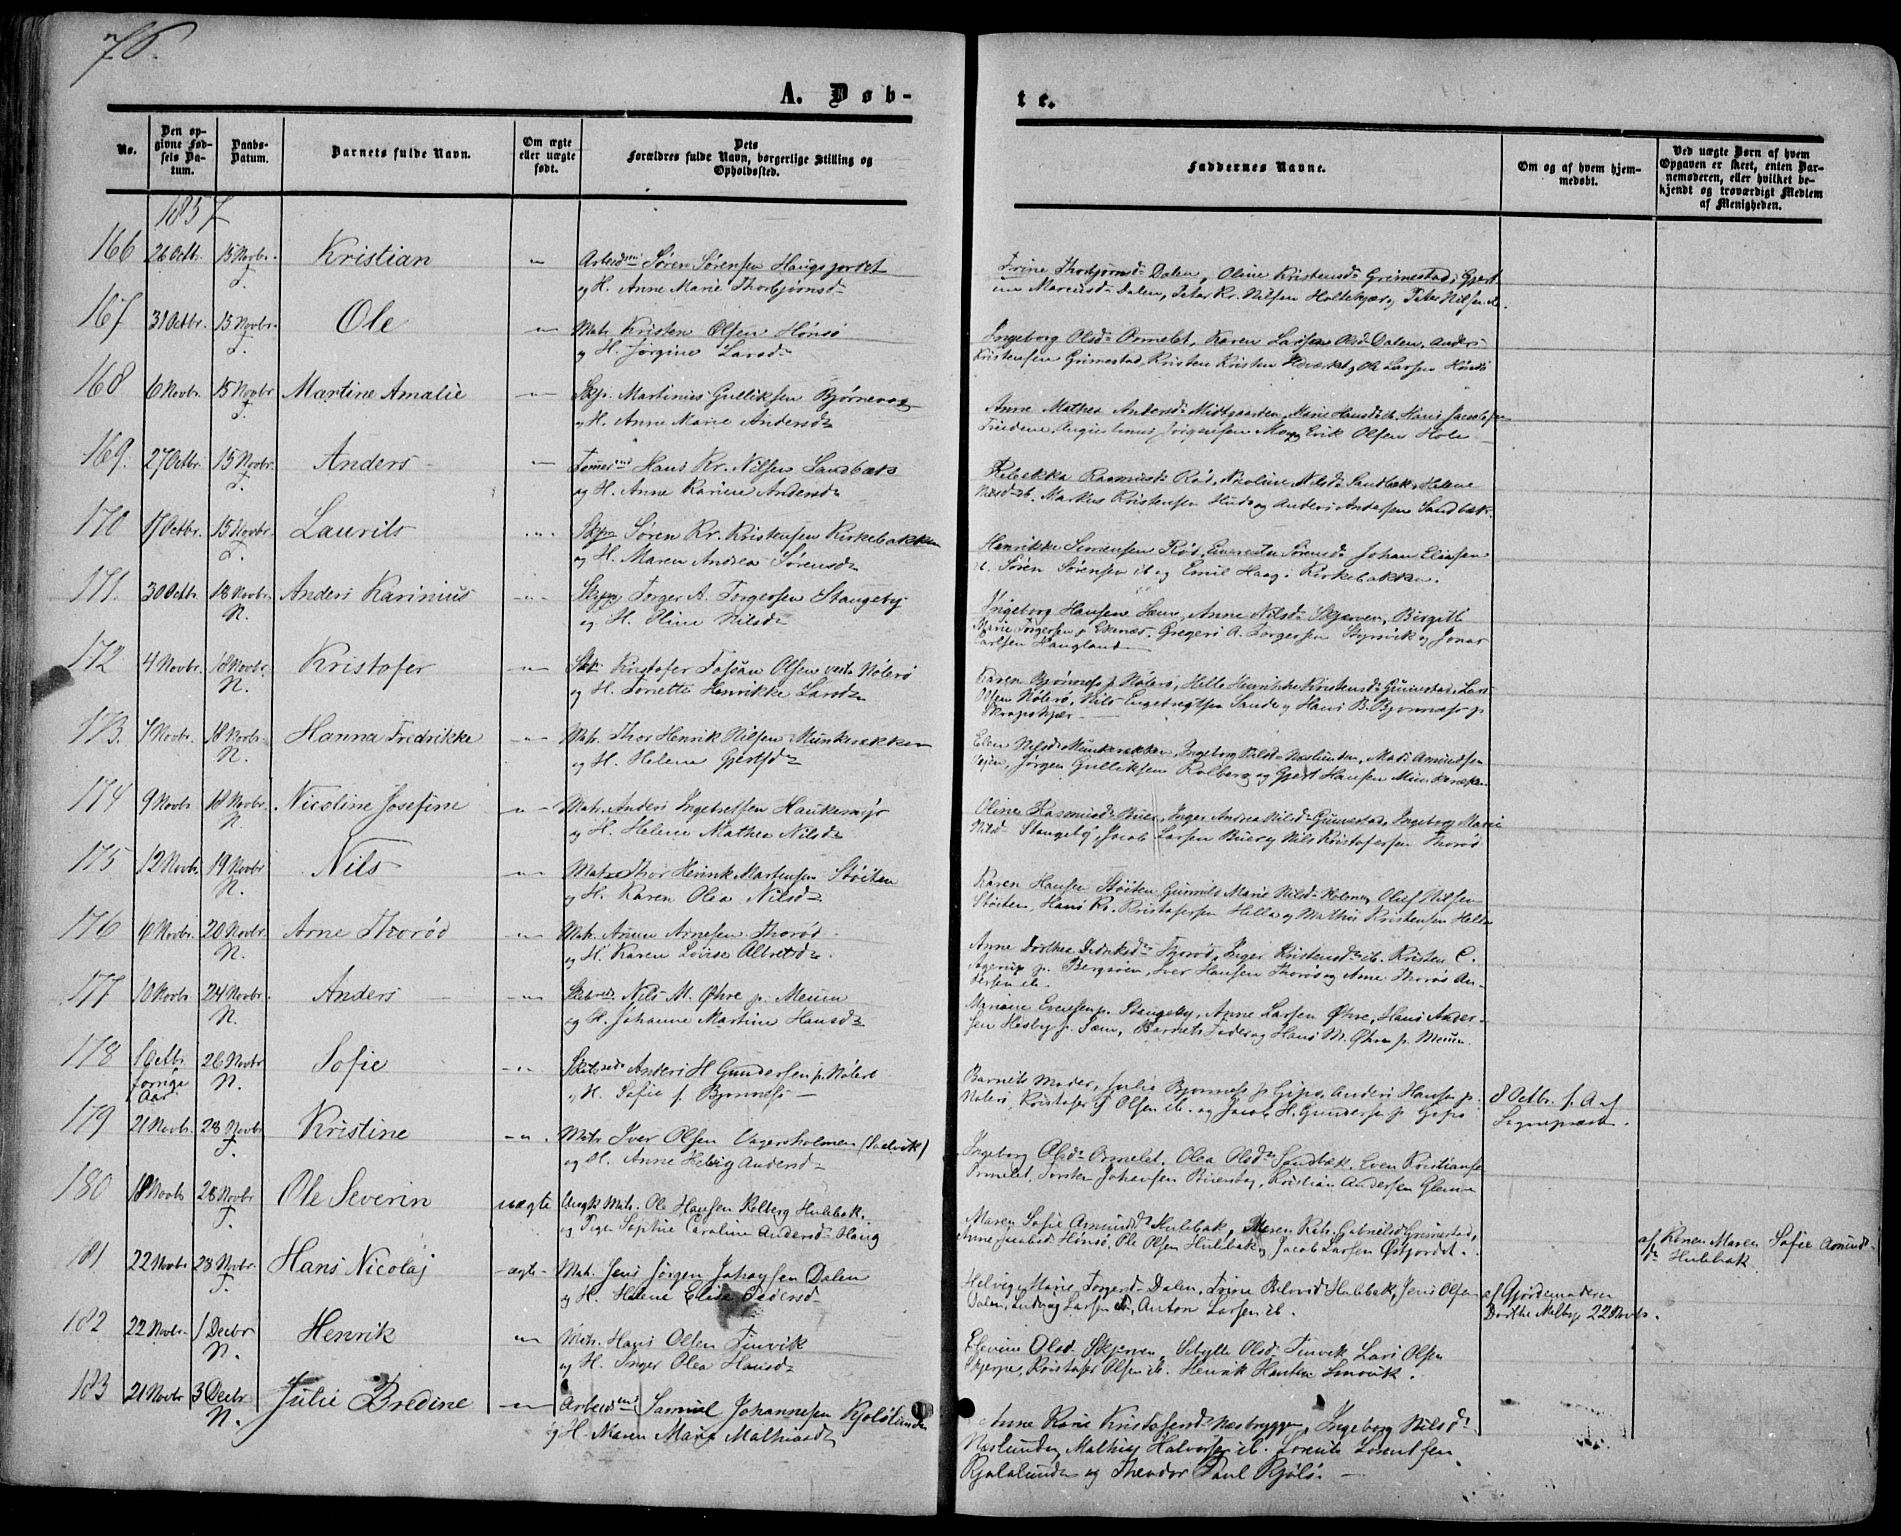 76.
A. Døb-
te.
No.
Den opgivne Fødsels Datum.
Daabs-Datum.
Barnets fulde Navn.
Om ægte eller uægte født.
Dets Forældres fulde Navn, borgerlige Stilling og Opholdssted.
Faddernes Navne.
Om og af hvem hjemmedøbt.
Ved uægte Børn af hvem Opgaven er skeet, enten Barnemoderen, eller hvilket bekjendt og troværdigt Medlem af Menigheden.
1857
166 26 Octbr. 15 Novbr. Kristian Søren Sørensen Haugsjordet
T. og H. Anne Marie Thorbjørnsd
Trine Thorbjørnsd Dalen, Oline Kristensd Grimestad,
Mariusd Dalen, Nilsen Holtekjær, Peter Nilsen
167 31 Octbr. 15 Novbr. Ole Matr. Kristen Olsen Hønsø
T. og H. Jørgine Larsd
Ingeborg Olsd Ormelet, Karen Larsen Dalen, Anders
Kristensen Grimestad, Kristen Kristen og Ole Larsen Hønsø
168 6 Novbr. 15 Novbr Martine Amalie Skp. Martinius Gulliksen Bjørnevaag
T. og H. Anne Marie Andersd
Anne Mathea Andersd Midtgaarden, Marie Hansd ib. Hans Jacobsen
Augustinus Jørgensen og Erik Olsen Hole
169. 27 Octbr. 15 Novbr. Anders Hans Kr. Nilsen Sandbæk
T. og H. Anne Karine Andersd
Rebekka Rasmusd Rød, Nicoline Nilsd Sandbæk, Helene
Nilsd ib. Markus Kristensen og Anders Andersen Sandbæk.
170 17 Octbr. 15 Novbr. Laurits Søren Kr. Kristensen Kirkebakken
T. og H. Maren Andrea Sørensd
Henrikke Simensen Rød, Sørensd Johan Eliasen
ib. Søren Sørensen ib og Emil Haag i Kirkebakken.
171. 30 Octbr. 18 Novbr. Anders Karinius Torger A. Torgersen Stangeby
N. og H. Oline Nilsd
Ingeborg Hansen Sæm, Anne Nilsd Skjerven, Birgith
Marie Torgersen p. Ekenæs Gregers A. Torgersen Strømvik og Jonas
Carlsen Haugland
172 4 Novbr. 18 Novbr. Kristofer Kristofer Olsen vestre Nøterø
N. og H. Tonette Henrikke Larsd
Karen Bjønness p. Nøterø, Helle Henrikke Kristensd Gunnestad, Lars
Olsen Nøterø, Nils Engebregtsen Sande og Hans B. Bjønness p.
173. 1 Novbr. 18 Novbr. Hanna Fredrikke Matr. Thor Henrik Nilsen Munkerekken
N. og H. Helene Gjertsd
Elen Nilsd Munkerekken, Ingeborg Nilsd Næslunden, Amundsen
Jørgen Gulliksen Kolberg og Gjert Hansen Munkerekken
174 9 Novbr 18 Novbr. Nicoline Josefine Matr. Anders Ingebretsen Haukemyr
N. og H. Helene Mathea Nilsd
Oline Rasmusd Buer, Inger Andrea Nilsd Gunnestad, Ingeborg Marie
Nilsd Stangeby, Jacob Larsen Buer og Nils Kristofersen Thorød
175 12 Novbr. 19 Novbr Nils Thor Henrik Martensen Støiten
N. og H. Karen Olea Nilsd
Karen Hansen Støiten, Marie Nilsd Holmen, Oluf Nilsen
Støiten, Hans Kr. Kristofersen Hella og Mathis Kristensen Hella
176 6 Novbr. 20 Novbr. Arne Thorød Matr. Arnesen Thorød
N. og H. Karen Lovise Albretsd
Anne Dorthea Thorød, Inger Kristensd ib. Kristen C.
Agerup p. Bergsøen, Iver Hansen Thorød og Arne Thorøs An-
dersen ib.
177 10 Novbr. 24 Novbr. Anders Nils M. Øhre p. Meum
N. og H. Johanne Martine Hansd
Mariane Evensen p. Stangeby, Anne Larsen Øhre, Hans Ander-
sen Hesby p. Sæm, Barnets Fader og Hans M. Øhre p. Meum.
178 1 Octbr. 26 Novbr Sofie Anders H Gundersen p. Nøterø
forrige Aar N. og H. Sofie f. Bjønness
Barnets Moder, Julie Bjønness p. Gipø, Anders Hansen p.
Nøterø, Kristofer Olsen ib. og Jacob H. Gundersen p. Gipø
8 Octbr. f. A af
Sognepræst.
179 21 Novbr. 28 Novbr Kristine Matr. Iver Olsen Vagersholmen
T. og H. Anne Helvig Andersd
Ingeborg Olsd Ormelet. Olea Olsd Sandbæk. Even Kristiansen
Ormelet, Torsten Johansen Kristian Andersen Glomne
180 18 Novbr 28 Novbr Ole Severin uægte Ungk. Matr. Ole Hansen Kolberg Hulebak.
T. og Pige Sophie Caroline Andersd Haug
Maren Sofie Amundsd Hulebak, Gabrielsd Grimestad,
Anne Jacobsd Hønsø, Ole Olsen Hulebak, Jacob Larsen Østjordet.
af Konen Maren Sofie Amundsd
Hulebak
181 22 Novbr 28 Novbr. Hans Nicolaj ægte Matr. Jens Jørgen Johansen Dalen
T. og H. Helene Elise Pedersd
Helvig Marie Torgersd Dalen, Trine Hulebak, Jens Olsen
Dalen, Ludvig Larsen ib, Anton Larsen ib.
af Gjordemoderen
Dorthe Melby 22 Novbr.
182 22 Novbr. 1 Decbr Henrik Matr. Hans Olsen Tinvik
N. og H. Inger Olea Hansd
Elevine Olsd Skjerven, Sibylle Olsd Tinvik Lars Olsen
Skjerpe, Kristofer Olsen ib. Henrik Hansen
183 21 Novbr 3 Decbr Julie Bredine Samuel Johannesen Kjølølunden
N. og H. Maren Marie Mathiasd
Anne Karie Kristofersd Næsbryggen, Ingeborg Nilsd
Næslunden, Mathis Halvorsen ib. Lorents Lorentsen
Kjølølunden og Theodor Paul Kjølø.